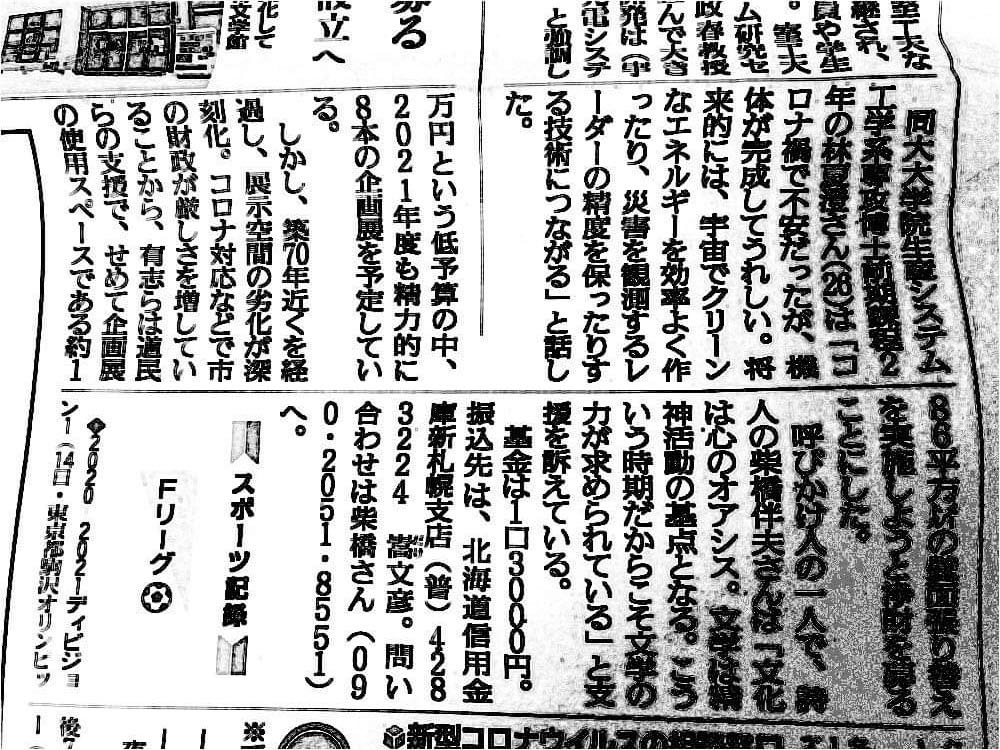 室工大な
継され、
員や学生
。室大
ム研究セ
政春教授
んで大き
発は（宇
電システ
と強調し
同大大学院生産システム
工学系専攻博士前期課程2
年の林夏澄さん(26)は「コ
ロナ禍で不安だったが、機
体が完成してうれしい。将
来的には、宇宙でクリーン
なエネルギーを効率よく作
ったり、災害を観測するレ
ーダーの精度を保ったりす
る技術につながる」と話し
た。
募る
設立へ
化して
文学館
万円という低予算の中、
2021年度も精力的に
8本の企画展を予定してい
る。
しかし、築70年近くを経
過し、展示空間の劣化が深
刻化。コロナ対応などで市
の財政が厳しさを増してい
ることから、有志らは道民
らの支援で、せめて企画展
の使用スペースである約1
86平方㍍の壁面張り替え
を実施しようと浄財を募る
ことにした。
呼びかけ人の一人で、詩
人の柴橋伴夫さんは「文化
は心のオアシス。文学は精
神活動の基点となる。こう
いう時期だからこそ文学の
力が求められている」と支
援を訴えている。
基金は1口3000円。
振込先は、北海道信用金
庫新札幌支店（普）428
3224 嵩文彦。問い
合わせは柴橋さん（09
0・2051・8551）
へ。
スポーツ記録
Fリーグ
◆2020 2021ディビジョ
ン1（14日・東京都駒沢オリンピッ
後
※
新型コロナウイルスの